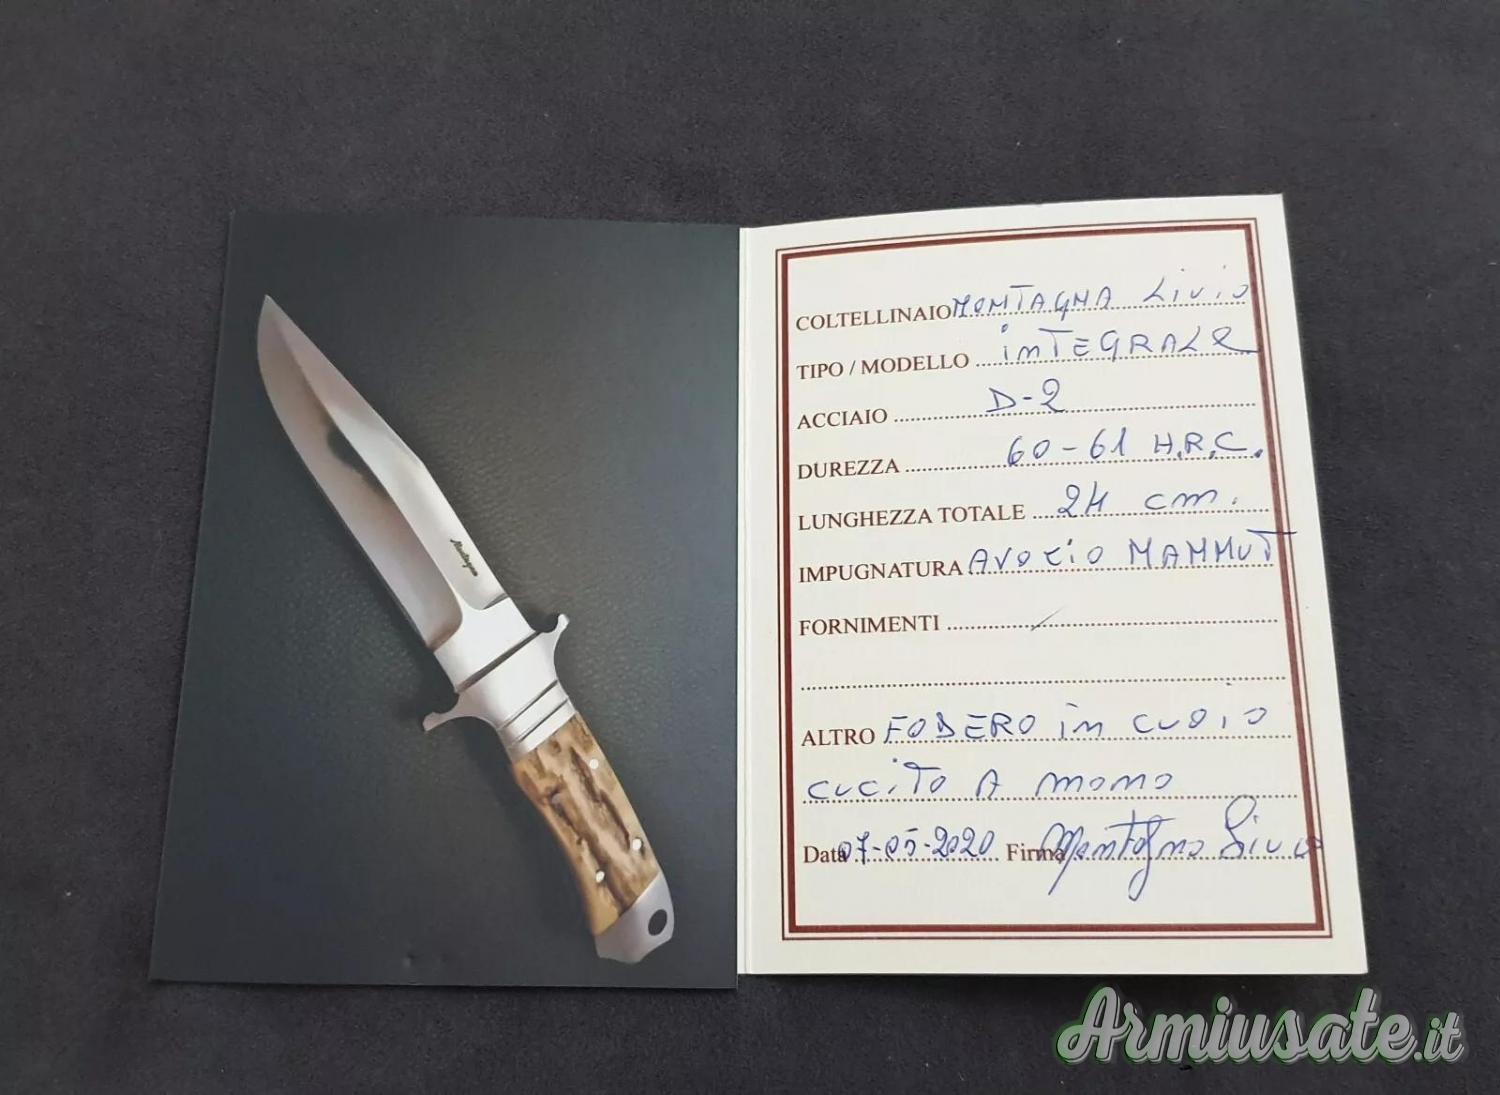 Montagna
COLTELLINAIO MONTAGNA Livio
TIPO / MODELLO inTEGRALE
ACCIAIO D-2
DUREZZA 60-61 H.R.C.
LUNGHEZZA TOTALE 24 cm.
IMPUGNATURA AVORIO MAMMUT
FORNIMENTI /
ALTRO FODERO in CUOiO
CUCiTO A mAnO
Data 07-05-2020 Firma Montagna Livio
Armiusate.it